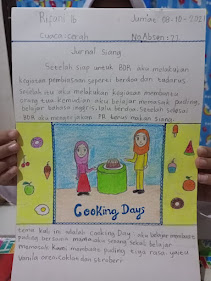 Rifani 1b Jumat 08-10-2021
Cuaca : cerah No Absen : 22
Jurnal Siang
Setelah siap untuk BDR aku melakukan
kegiatan pembiasaan seperti berdoa dan tadarus
Setelah itu aku melakukan kegiatan membantu
orang tua kemudian aku belajar memasak puding,
belajar bahasa inggris, lalu berdoa. Setelah selesai
BDR aku mengerjakan PR terus makan siang
Cooking Days
tema kali ini adalah Cooking Day. aku belajar membuat
puding bersama mamaku senang sekali belajar
memasak kami membuat puding tiga rasa yaitu
Vanila oreo, coklat dan stroberi